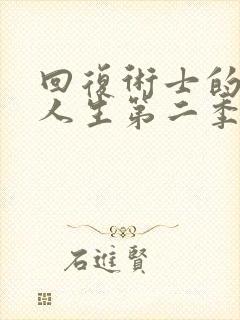 回復術士的
人生第二季
石進賢